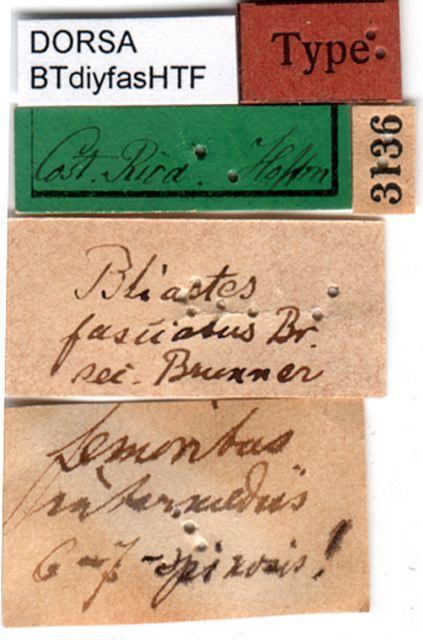 DORSA
BTdiyfasHTF
Type.
Cost. Rica. Hoffm
3136
Bliastes
fasciatus Br.
sec. Brunner
femoribus
intermediis
6-7-spinosis!